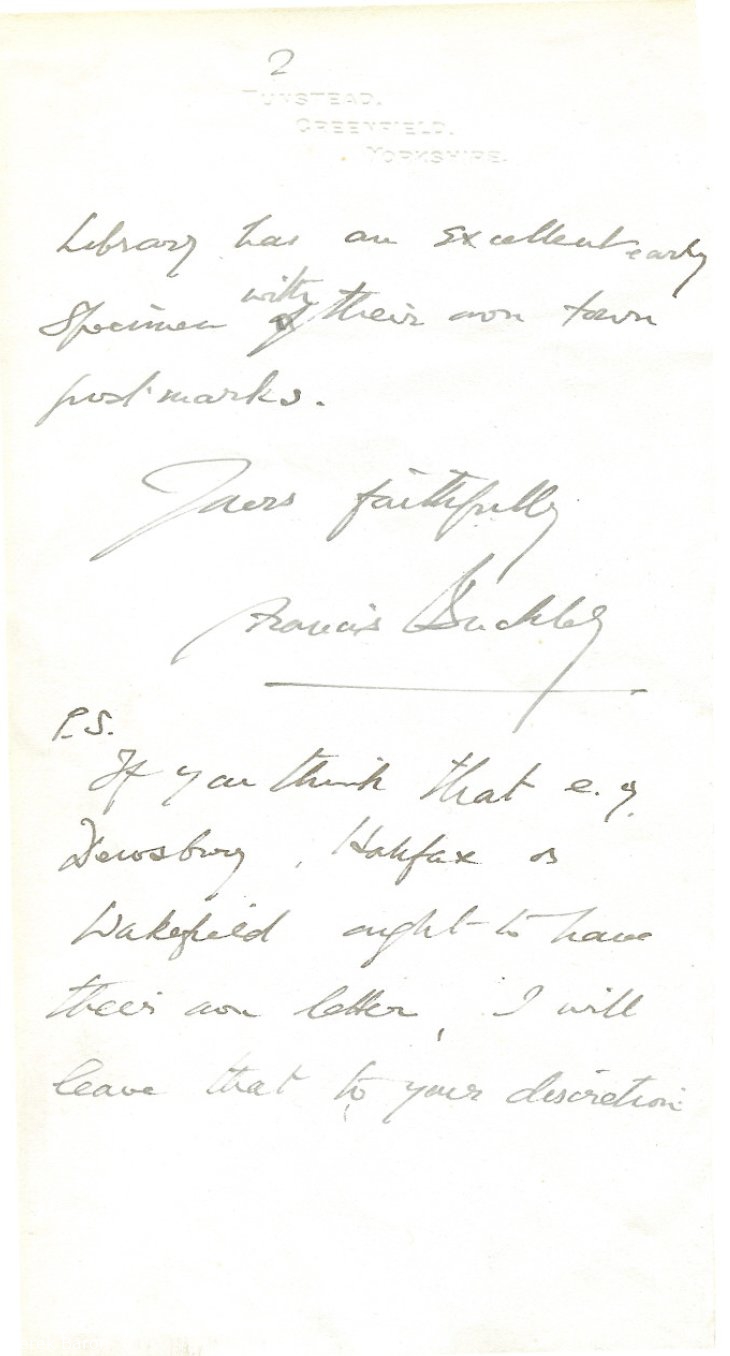 2
TUNSTEAD.
GREENFIELD.
YORKSHIRE.
Library has an excellent early
specimen with their own town
post marks.
Yours faithfully
Francis Buckley
P.S.
If you think that e.g.
Dewsbury, Halifax or
Wakefield ought to have
their own letter, I will
leave that to your discretion